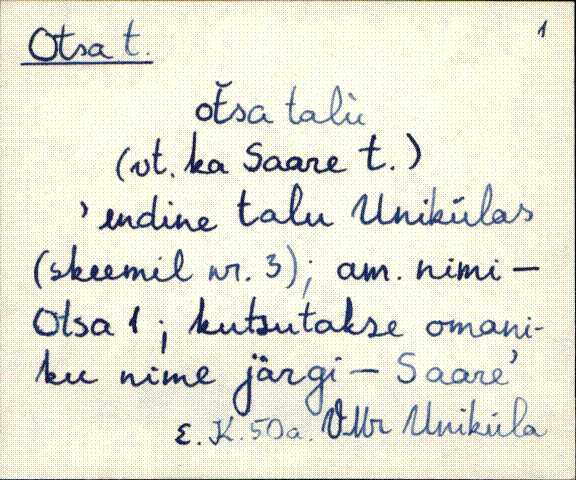 Otsa t.
1
ot̆sa talù
(vt. ka Saare t.)
'endine talu Uniküla's
(skeemil nr. 3); am. nimi –
Otsa 1; kutsutakse omani-
ku nime järgi – Saare'
E. K. 50a. VMr Uniküla